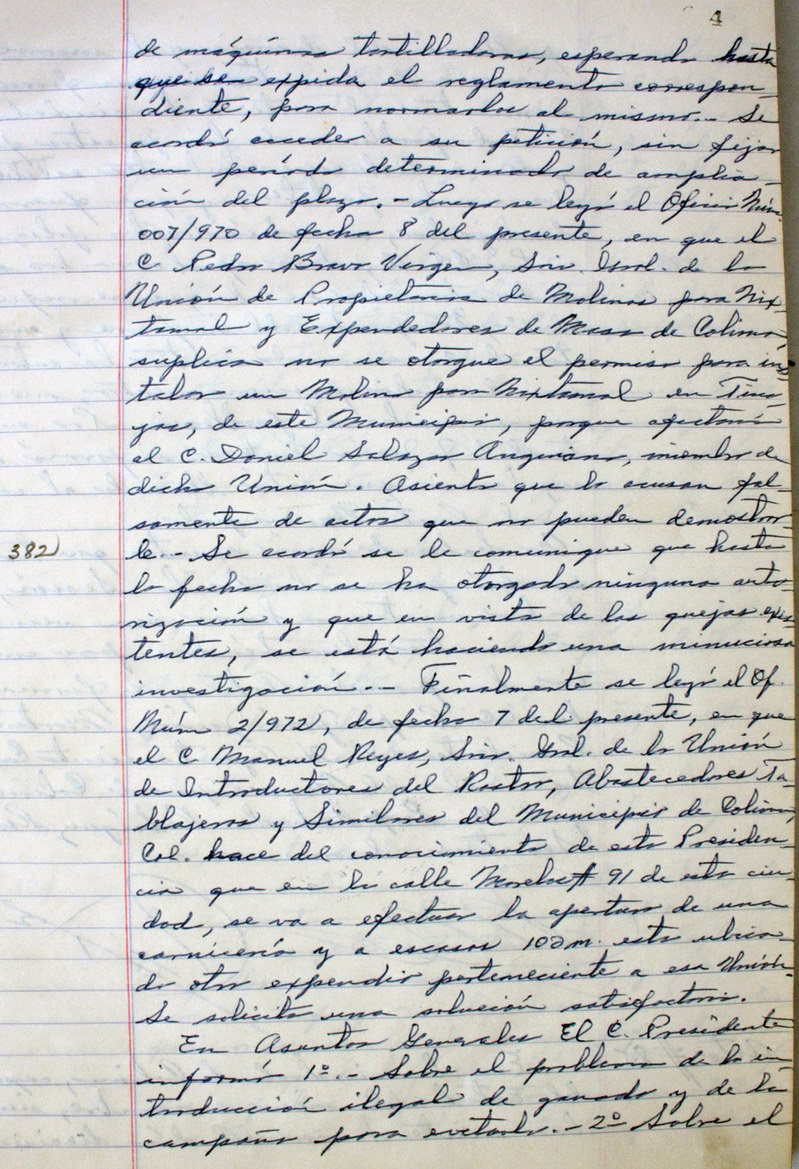 4
de máquinas tortilladoras, esperando hasta
que sea expida el reglamento correspon
diente, para normarlos al mismo.- Se
acordó acceder a su petición, sin fijar
un período determinado de amplia-
ción del plazo.- Luego se leyó el Oficio Núm.
007/970 de fecha 8 del presente, en que el
C Pedro Bravo Virgen, Srio. Gral. de la
Unión de Propietarios de Molinos para Nix-
tamal y Expendedores de Masa de Colima,
suplica no se otorgue el permiso para ins-
talar un Molino para Nixtamal en Tino-
jas, de este Municipio, porque afectaría
al C. Daniel Salazar Anguiano, miembro de
dicha Unión. Asienta que lo acusan fal-
samente de actos que no pueden demostrar-
382) le.- Se acordó se le comunique que hasta
la fecha no se ha otorgado ninguna auto-
rización y que en vista de las quejas exis-
tentes, se está haciendo una minuciosa
investigación.- Finalmente se leyó el Of.
Núm 2/972, de fecha 7 del presente, en que
el C Manuel Reyes, Srio. Gral. de la Unión
de Introductores del Rastro, Abastecedores Ta-
blajeros y Similares del Municipio de Colima,
Col. hace del conocimiento de esta Presiden-
cia que en la calle Morelos # 91 de esta ciu-
dad, se va a efectuar la apertura de una
carnicería y a escasos 100 m. esta ubica-
do otro expendio perteneciente a esa Unión.
Se solicita una solución satisfactoria.
En Asuntos Generales El C. Presidente
informó 1º.- Sobre el problema de la in
troducción ilegal de ganado y de la
campaña para evitarla.- 2º Sobre el